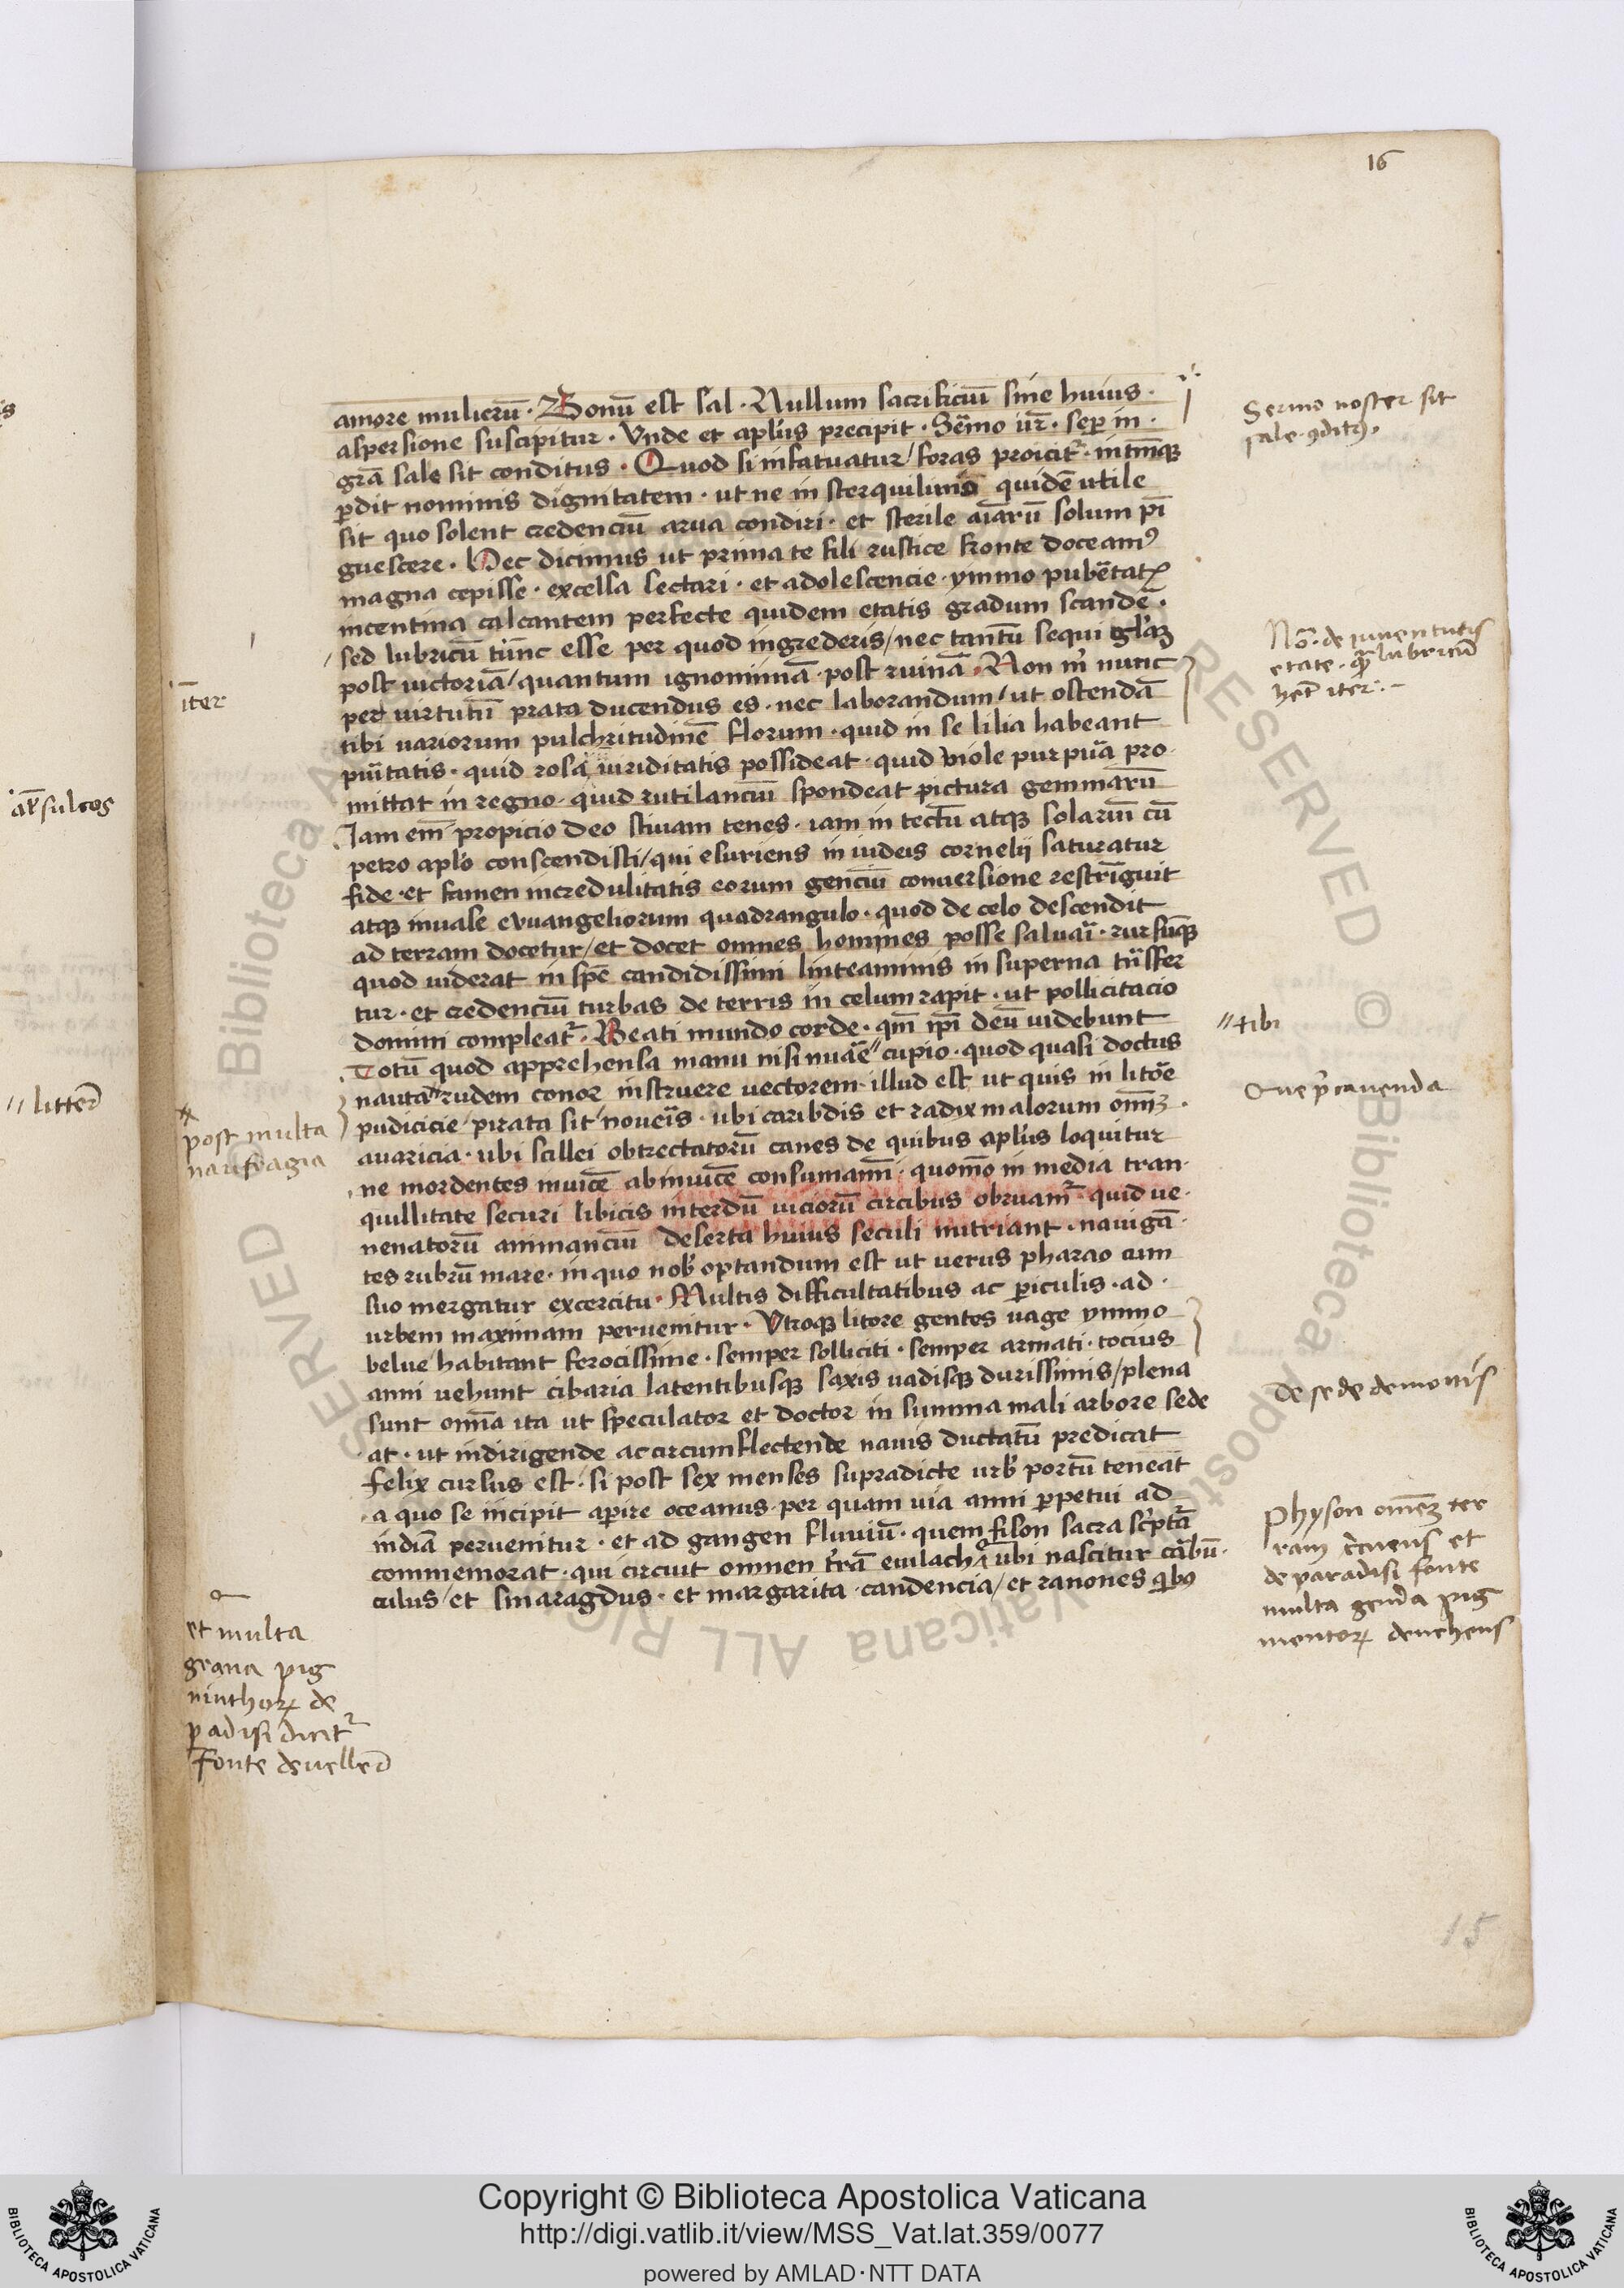 16
amore mulierū · Bonū est sal · Nullum sacrificiū sine huius ·
aspersione suscipitur · Vnde et aplūs precipit · Sermo ur̄ · sep̄ in ·
grā sale sit conditus · Quod si infatuatur / foras proicit᷑ · intm̄qꝫ
ꝑdit nominis dignitatem · ut ne in sterquilinio quidē utile
sit quo solent credenciū arua condiri · et sterile aīarū solum pī
guescere · Hec dicimus ut prima te fili rustice fronte doceamꝰ
magna cepisse · excelsa sectari · et adolescencie · ymmo pubētatꝭ
incentiua calcantem perfecte quidem etatis gradum scandē ·
/ sed lubricū tūnc esse per quod ingrederis / nec tantū sequi gl̄aꝫ
post uictoriā / quantum ignominiā · post ruinā · Non m̄ nunc
per uirtutū prata ducendus es · nec laborandum / ut ostendā
tibi uariorum pulchritudinē florum · quid in se lilia habeant
piū̄tatis · quid rosa uiriditatis possideat · quid viole purpura pro
mittat in regno · quid rutilanciū spondeat pictura gemmarū
Iam em̄ propicio deo stiuam tenes · iam in tectū atqꝫ solariū cū
petro aplo conscendisti / qui esuriens in iudeis cornelii saturatur
fide · et famen incredulitatis eorum genciū conuersione restringuit
atqꝫ in uase evuangeliorum quadrangulo · quod de celo descendit
ad terram docetur / et docet omnes homines posse saluari · rursūqꝫ
quod uiderat in spē candidissimi linteaminis in superna trāsfer
tur · et credenciū turbas de terris in celum rapit · ut pollicitacio
domini compleat᷑ · Beati mundo corde · qm̄ ip̄i deū uidebunt
Totū quod apprehensa manu nisi nuare // cupio · quod quasi doctus
nauta rudem conor instruere uectorem · illud est ut quis in litore
pudicicie / pirata sit / noueris · ubi caribdis et radix malorum omīꝫ ·
auaricia · ubi scillei obtrectatorū canes de quibus aplūs loquitur
ne mordentes inuicē ab inuicē consumamī · quomo in media tran
quillitate securi libicis interdū uiciorū circibus obruam᷑ quid ue
nenatorū animanciū deserta huius seculi nutriant · nauigā
tes rubrū mare · in quo nob̄ optandum est ut uerus pharao cum
suo mergatur excercitu · Multis difficultatibus ac ꝑiculis · ad ·
urbem maximam peruenitur · Vtroqꝫ litore gentes uage ymmo
belue habitant ferocissime · semper solliciti · semper armati · tocius
anni uehunt cibaria latentibusqꝫ saxis uadisqꝫ durissimis / plena
sunt omīa ita ut speculator et doctor in summa mali arbore sede
at · ut indirigende ac circumflectende nauis ductatū predicat
felix cursus est · si post sex menses supradicte urb̄ portū teneāt
a quo se incipit aꝑire oceanus · per quam uia anni ꝑpetui ad
indiā peruenitur · et ad gangen fluuiū · quem fison sacra sc̄ptā
commemorat · qui circuit omnen trā̄ euilach ubi nascitur carbū ·
culus / et smaragdus · et margarita candencia / et ranones qͥbꝰ
Sermo noster sit
sale ꝯditꝰ
No · de iuuentutis
etate · qr̄ lubricū
het iter · –
iter
// tibi
Que pͥ cauenda
post multa
naufragia
de sede demonis
Physon om̄eꝫ ter
ram c̄cuens et
de paradisi fonte
multa genera pig
mentoꝝ deuehens
et multa
grana pig
minthoꝝ de
ꝑadisi dicit᷑
fonte deuelled
15
arsulcos
// litterē
Copyright © Biblioteca Apostolica Vaticana
http://digi.vatlib.it/view/MSS_Vat.lat.359/0077
powered by AMLAD·NTT DATA
BIBLIOTECA APOSTOLICA VATICANA
BIBLIOTECA APOSTOLICA VATICANA